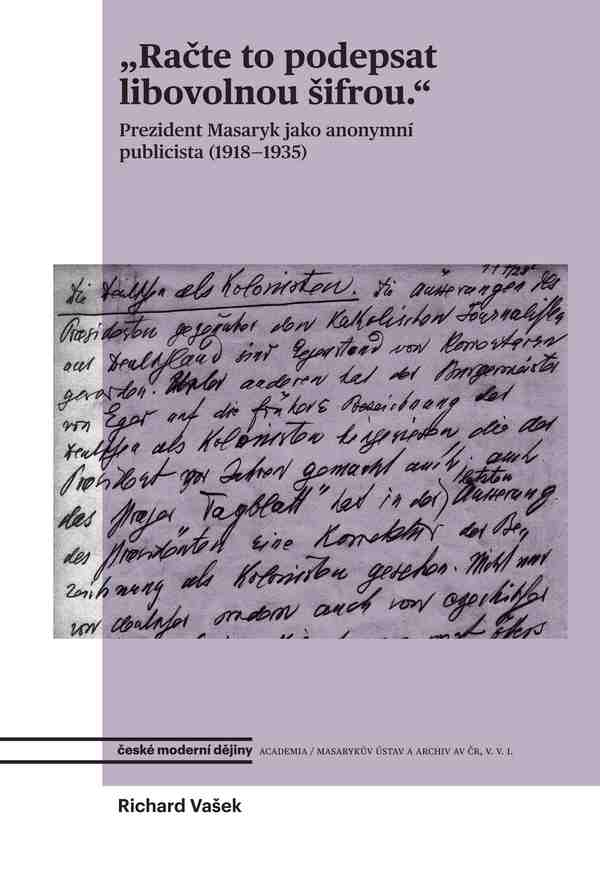 „Račte to podepsat
libovolnou šifrou.“
Prezident Masaryk jako anonymní
publicista (1918–1935)
Die Deutschen als Kolonisten. Die äusserungen des
Präsidenten gegenüber den Katholischen Journalisten
aus Deutschland sind Gegenstand von Komentaren
geworden. Unter anderen hat der Burgermeister
von Eger auf die frühere Bezeichnung der
Deutschen als Kolonisten hingewiesen die der
Präsident vor Jahren gemacht auch
das Prager Tagblatt" hat in der letzten Äusserung
des Präsidenten eine Korrektur der Be,
zeichnung als Kolonisten gesehen. Nicht nur
von deutscher sondern auch von
česke moderní dějiny ACADEMIA / MASARYKŮV ÚSTAV A ARCHIV AV ČR, V. V. I.
Richard Vašek